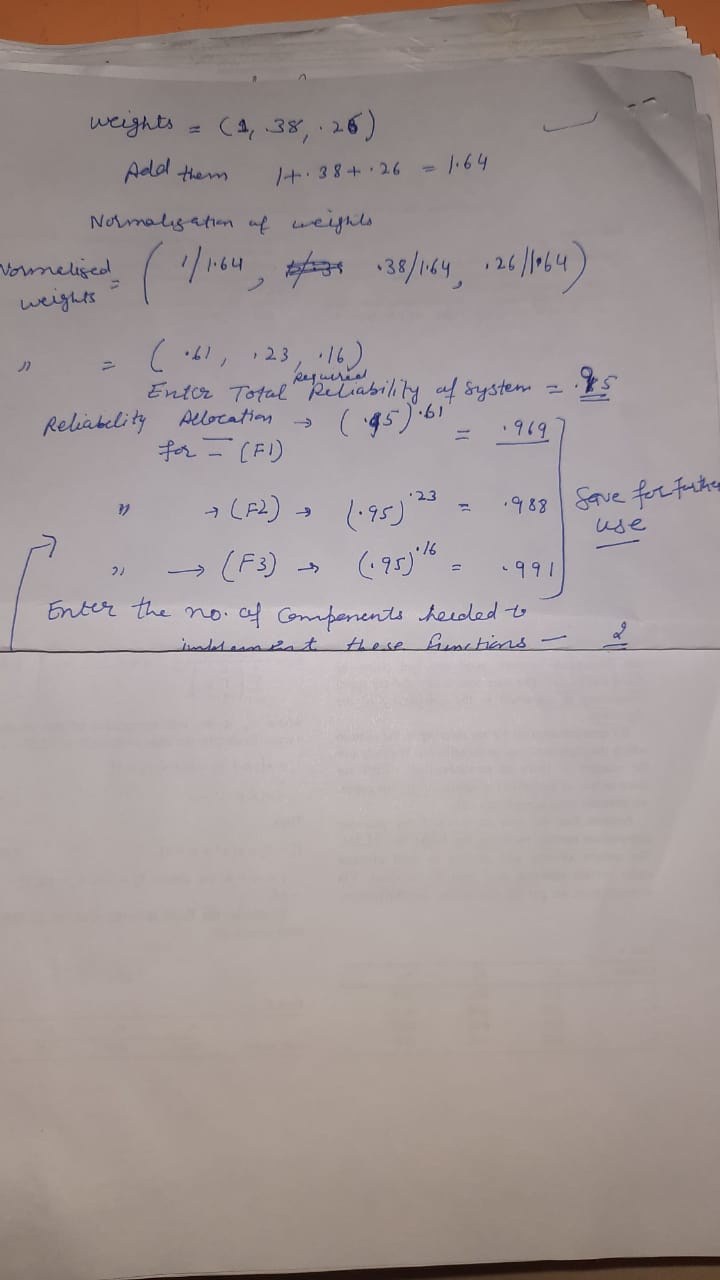 weights = (1, .38, .26)
Add them 1+.38+.26 = 1.64
Normalization of weights
Normalized weights = ( 1/1.64, .38/1.64, .26/1.64)
" = ( .61, .23, .16)
Enter Total Required Reliability of System = .95
Reliability Allocation for - (F1) → (.95)^.61 = .969
" → (F2) → (.95)^.23 = .988
" → (F3) → (.95)^.16 = .991
Save for further use
Enter the no. of Components needed to
implement these functions — 2